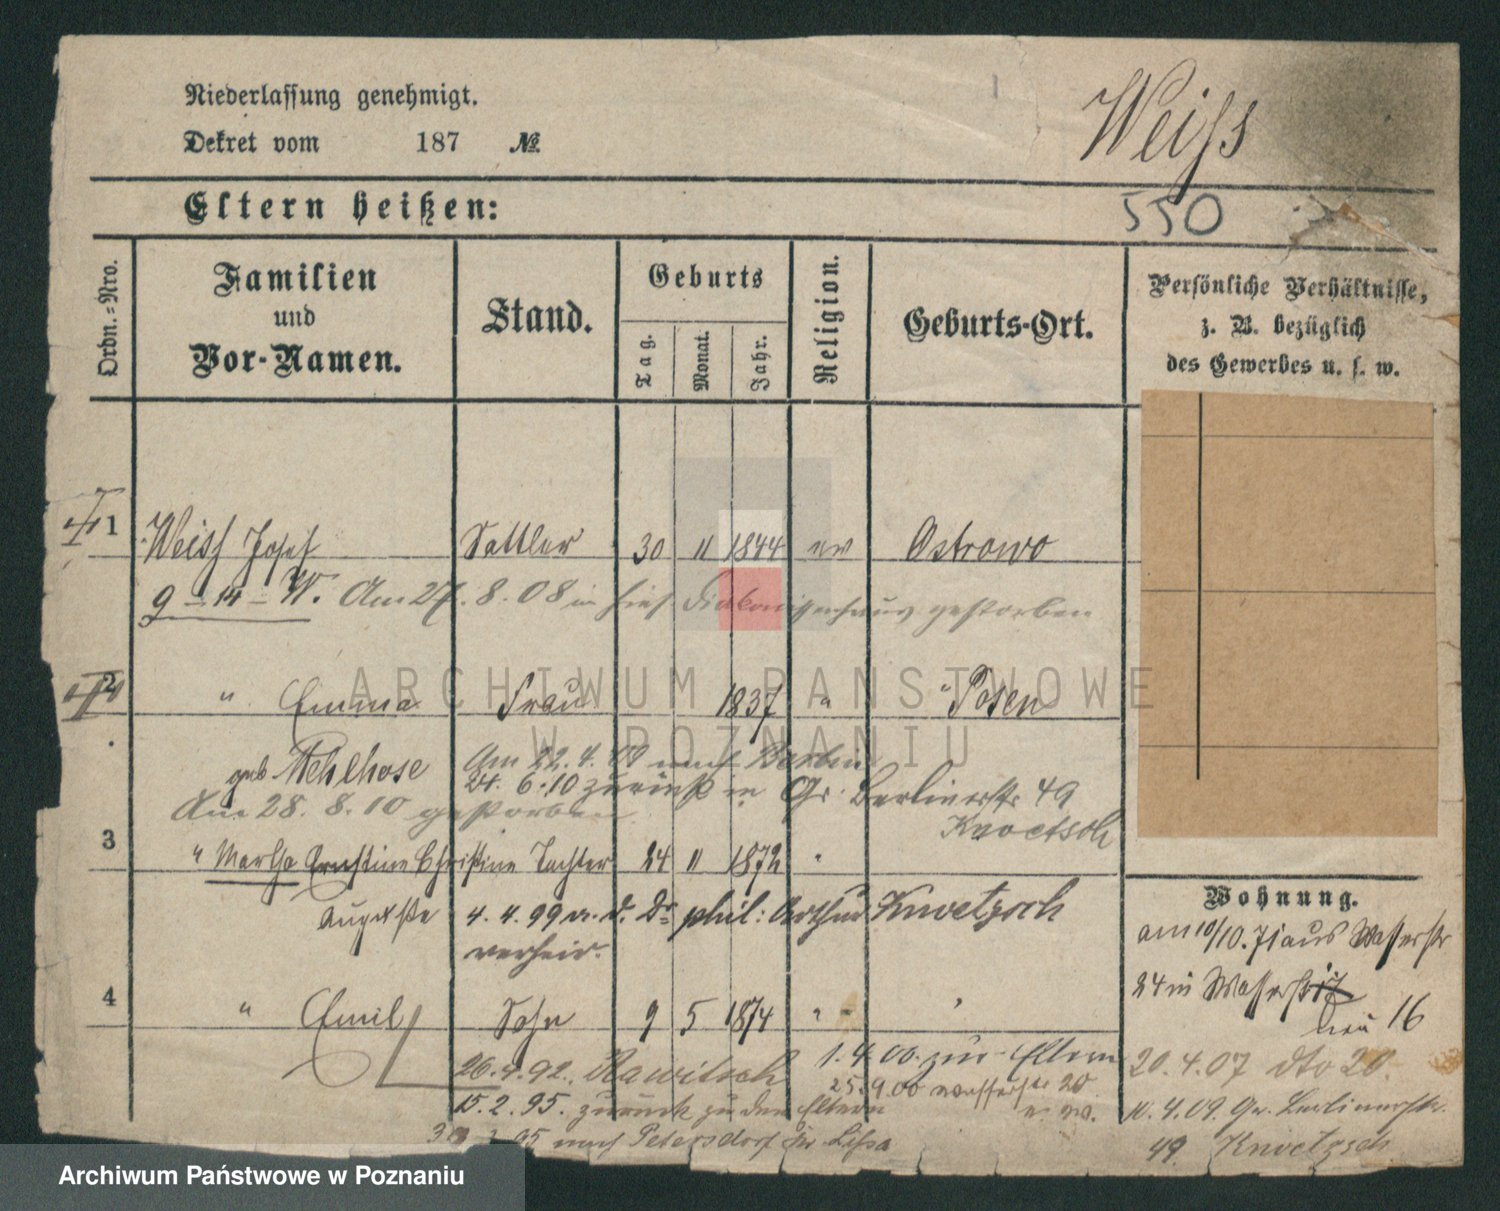 Niederlassung genehmigt.
Dekret vom 187 №
Weiss
Eltern heißen:
550
Ordn.-Nro.
Familien
und
Vor-Namen.
Stand.
Geburts
Tag.
Monat.
Jahr.
Religion.
Geburts-Ort.
Persönliche Verhältnisse,
z. B. bezüglich
des Gewerbes u. s. w.
1 Weiss Josef Sattler 30 11 1844 ev Ostrowo
9 - 14 - W. Am 27. 8. 08 im hies. Diakonissenhaus gestorben
2 " Emma Frau 1837 " Posen
geb Mehlhose Am 22. 4. 09 nach Berlin
24. 6. 10 zurück in Gr. Berlinerstr 49
Am 28. 8. 10 gestorben
Knoetsch
3 " Martha Ernstine Christine Tochter 24 11 1872 "
Auguste 4. 4. 99 m. d. Dr phil: Arthur Knoetzsch
verheir.
4 " Emil Sohn 9 5 1874 " "
26. 4. 92. Rawitsch
1. 4. 00. zur Eltern
15. 2. 95. zurück zu den Eltern
25. 9. 00 Wasserstr 20
95 nach Petersdorf Kr Lissa
Wohnung.
am 10/10. 71 aus Wasserstr
24 in Wasserstr 17
neu 16
20. 4. 07 dto 20.
10. 4. 09. Gr. Berlinerstr.
49 Knoetzsch
ARCHIWUM PAŃSTWOWE
W POZNANIU
Archiwum Państwowe w Poznaniu